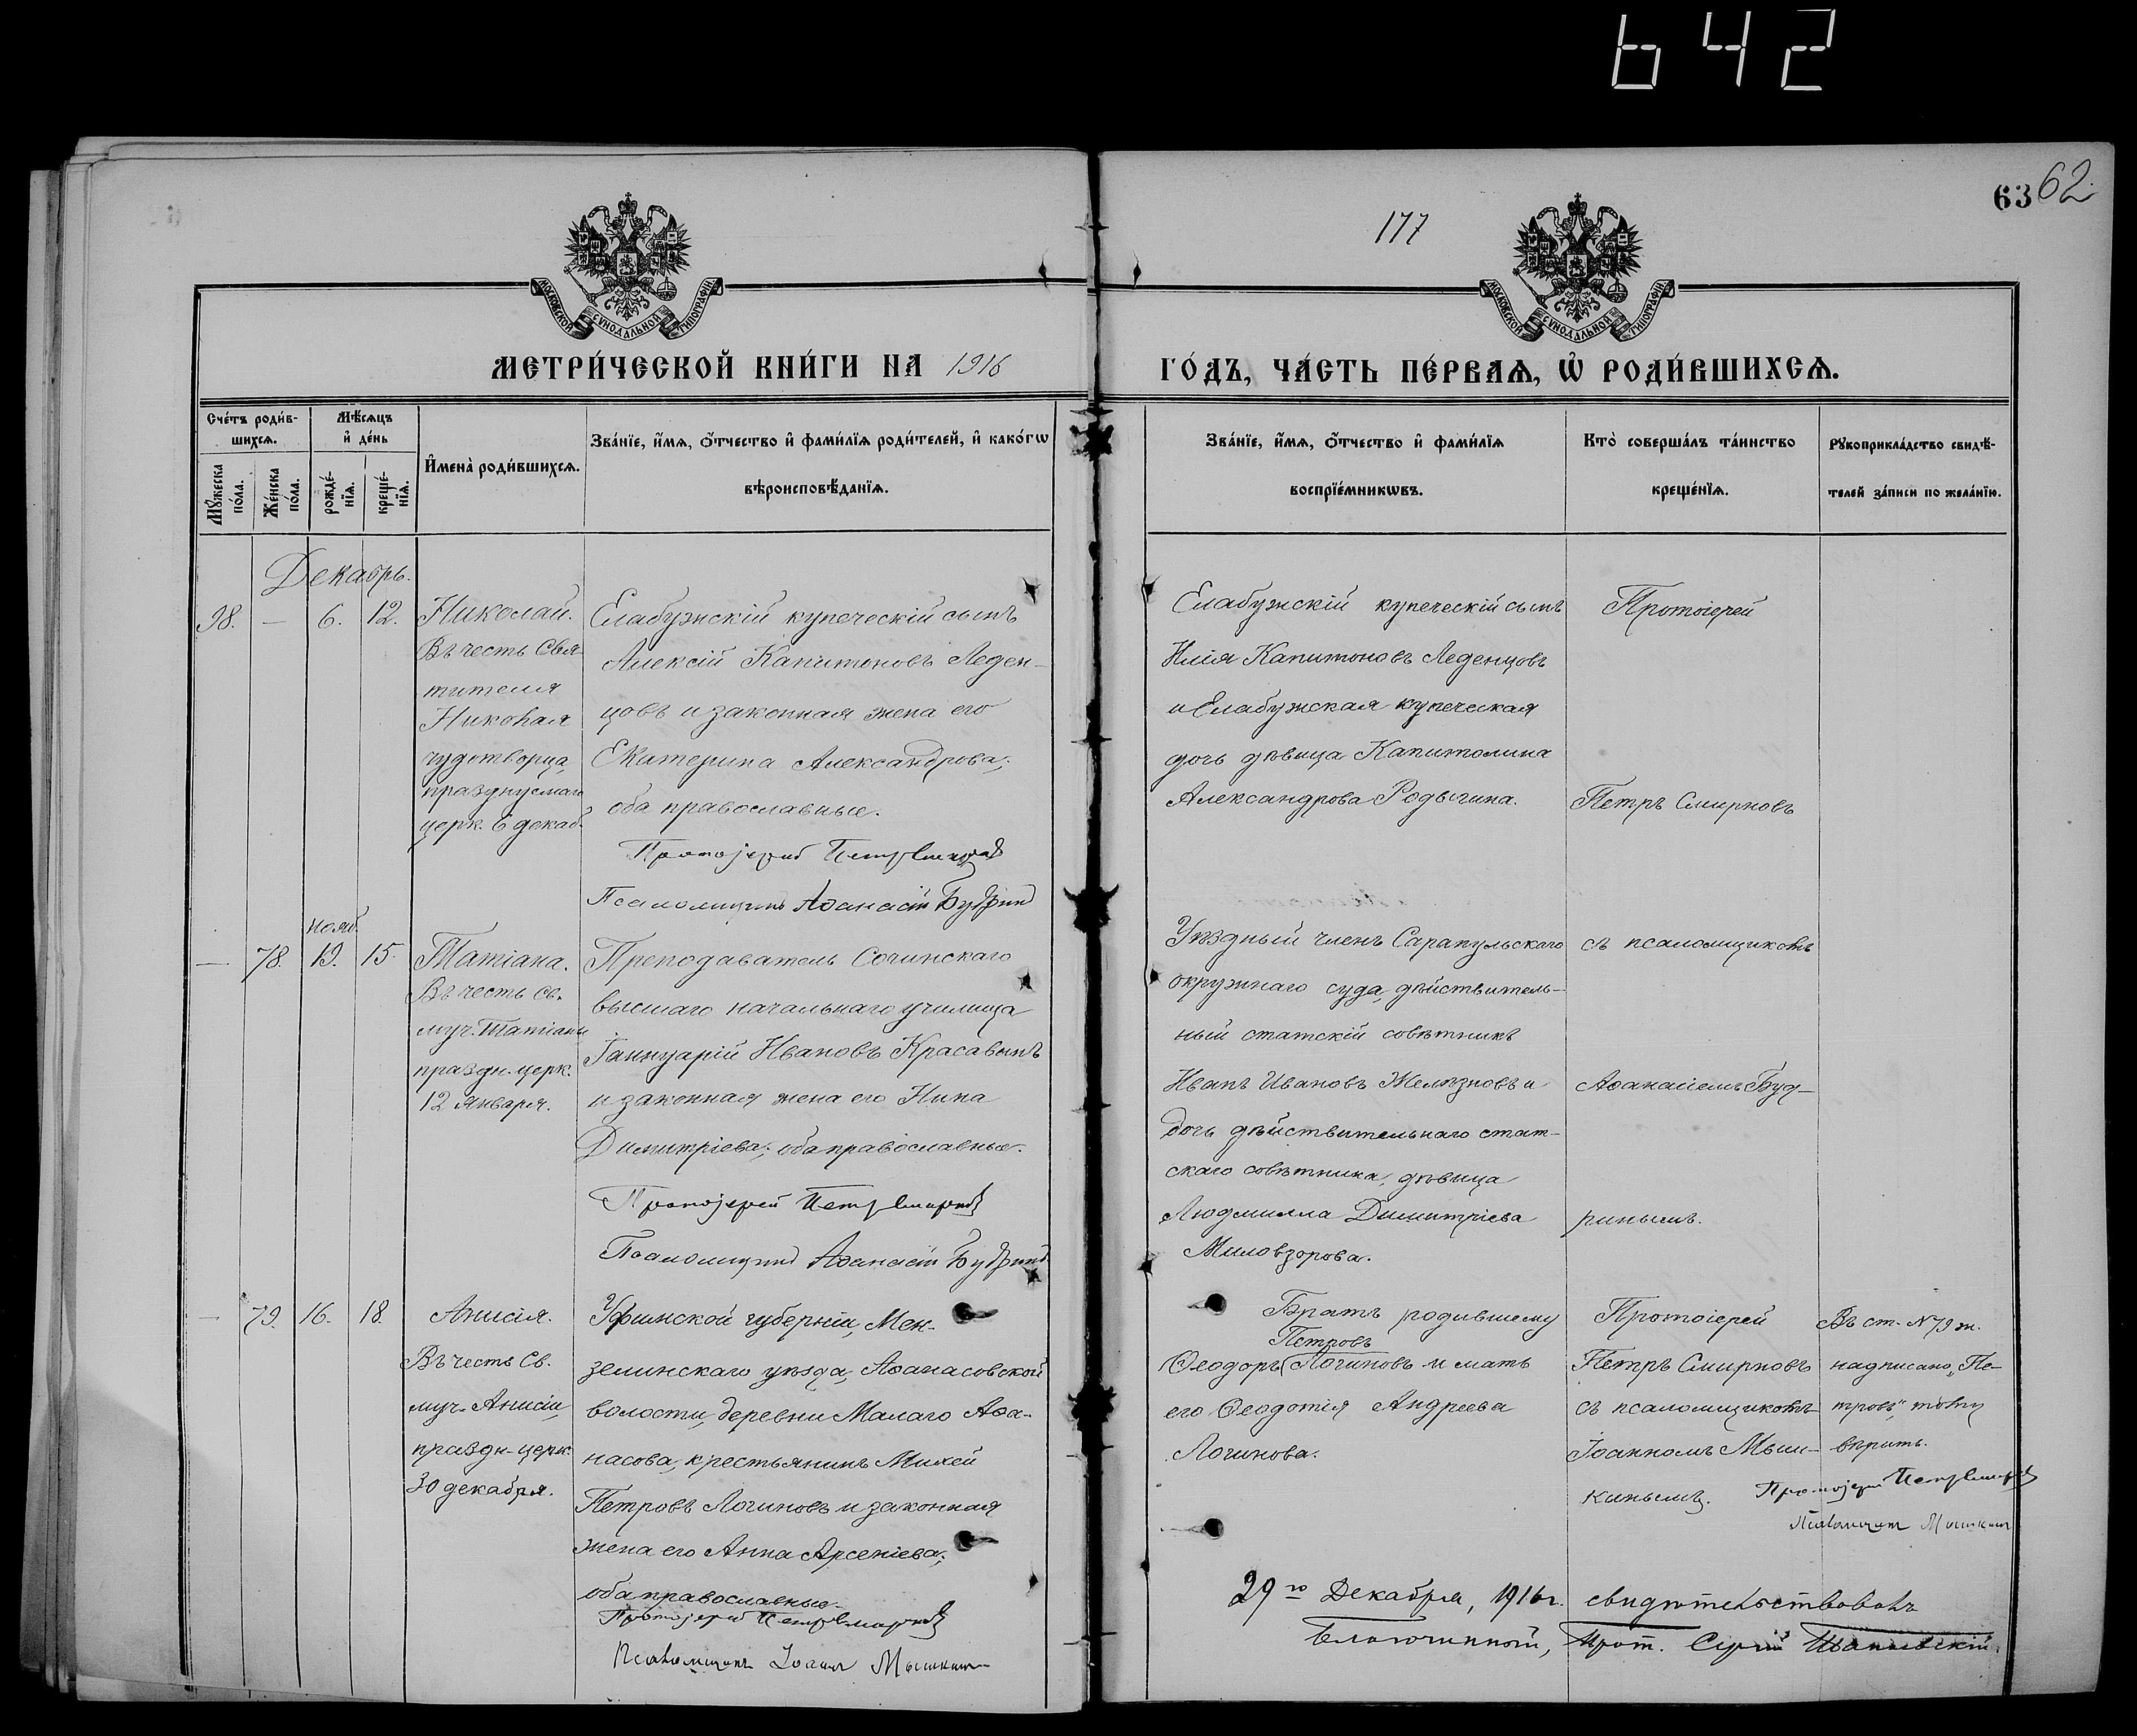 642
63 62.
177
МОСКОВСКОЙ СѴНОДАЛЬНОЙ ТИПОГРАФІИ
МОСКОВСКОЙ СѴНОДАЛЬНОЙ ТИПОГРАФІИ
МЕТРИ́ЧЕСКОЙ КНИ́ГИ НА 1916
ГО́ДЪ, ЧА́СТЬ ПЕ́РВАѦ, Ѡ҆ РОДИ́ВШИХСѦ.
Сче́тъ роди́в-
шихсѧ.
Мꙋ́жеска по́ла.
Же́нска по́ла.
Мѣ́сѧцъ
и҆ де́нь
рожде́-
нїѧ.
креще́-
нїѧ.
И҆мена̀ роди́вшихсѧ.
Зва́нїе, и҆́мѧ, ѻ҆́тчество и҆ фами́лїѧ роди́телей, и҆ како́гѡ
вѣроисповѣ́данїѧ.
Зва́нїе, и҆́мѧ, ѻ҆́тчество и҆ фами́лїѧ
воспрїе́мникѡвъ.
Кто̀ соверша́лъ та́инство
креще́нїѧ.
Рꙋкоприкла́дство свидѣ́-
телей за́писи по жела́нїю.
Декабрь.
98. — 6. 12.
Николай.
Въ честь Свя-
тителя
Николая
чудотворца,
празднуемаго
церк. 6 декаб.
Елабужскій купеческій сынъ
Алексій Капитоновъ Леден-
цовъ и законная жена его
Екатерина Александрова;
оба православные.
Протоіерей Петръ Смирновъ
Псаломщикъ Аѳанасій Будринъ
Елабужскій купеческій сынъ
Илія Капитоновъ Леденцовъ
и Елабужская купеческая
дочь дѣвица Капитолина
Александрова Родыгина.
Протоіерей
Петръ Смирновъ
нояб.
— 78. 13. 15.
Татіана.
Въ честь св.
муч. Татіаны
праздн. церк.
12 января.
Преподаватель Сочинскаго
высшаго начальнаго училища
Іаннуарій Ивановъ Красавинъ
и законная жена его Нина
Димитріева; оба православные.
Протоіерей Петръ Смирновъ
Псаломщикъ Аѳанасій Будринъ
Уѣздный членъ Сарапульскаго
окружнаго суда, дѣйствитель-
ный статскій совѣтникъ
Иванъ Ивановъ Желѣзновъ и
дочь дѣйствительнаго стат-
скаго совѣтника, дѣвица
Людмилла Димитріева
Миловзорова.
съ псаломщикомъ
Аѳанасіемъ Буд-
ринымъ.
— 79. 16. 18.
Анисія.
Въ честь св.
муч. Анисіи,
праздн. церк.
30 декабря.
Уфимской губерніи, Мен-
зелинскаго уѣзда, Аѳанасовской
волости, деревни Малаго Аѳа-
насова, крестьянинъ Михей
Петровъ Логиновъ и законная
жена его Анна Арсеніева;
оба православные.
Протоіерей Петръ Смирновъ
Псаломщикъ Іоаннъ Мышкинъ
Братъ родившему
Петровъ
Ѳеодоръ Логиновъ и мать
его Ѳеодотія Андреева
Логинова.
Протоіерей
Петръ Смирновъ
съ псаломщикомъ
Іоанномъ Мыш-
кинымъ.
Въ ст. №79 ж.
надписано „Пе-
тровъ“, тому
вѣрить.
Протоіерей Петръ Смирновъ
Псаломщикъ Мышкинъ
29го Декабря, 1916 г. свидѣтельствовалъ
Благочинный, Прот. Сергій